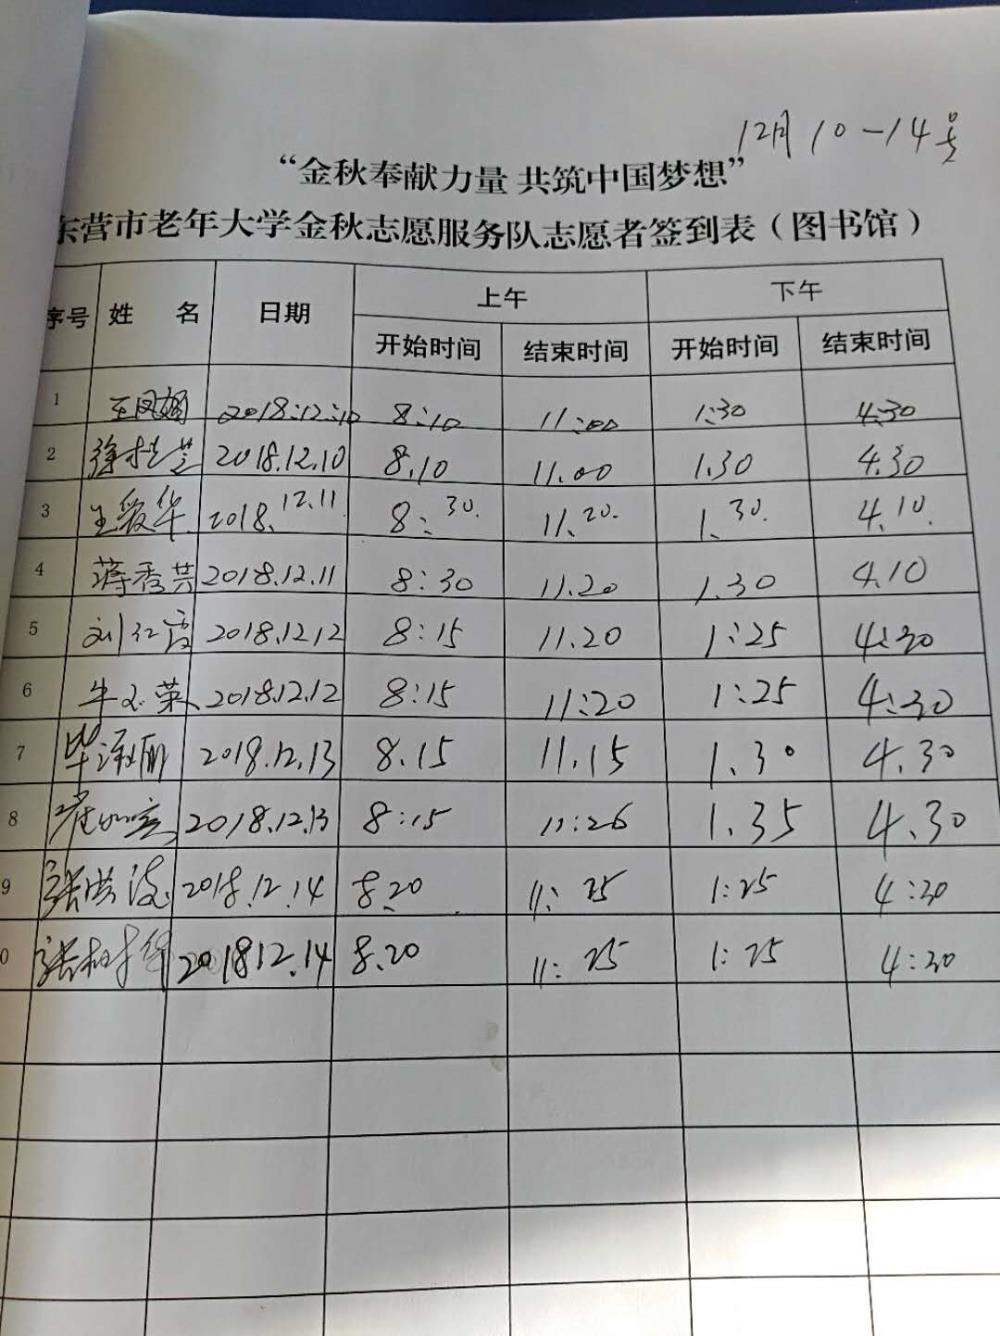 12月10-14号
“金秋奉献力量 共筑中国梦想”
东营市老年大学金秋志愿服务队志愿者签到表（图书馆）
序号 姓 名 日期 上午 下午
开始时间 结束时间 开始时间 结束时间
1 王凤娟 2018:12:10 8:10 11:00 1:30 4:30
2 徐桂芝 2018.12.10 8.10 11.00 1.30 4.30
3 王爱华 2018.12.11 8:30. 11.20. 1.30. 4.10.
4 蒋秀芸 2018.12.11 8:30 11.20 1.30 4.10
5 刘红霞 2018.12.12 8:15 11.20 1:25 4:30
6 牛玉荣 2018.12.12 8:15 11:20 1:25 4:30
7 毕淑丽 2018.12.13 8.15 11.15 1.30 4.30
8 2018.12.13 8:15 11:26 1.35 4.30
9 张洪波 2018.12.14 8.20 11:25 1:25 4:30
0 张 2018 12.14 8.20 11:25 1:25 4:30